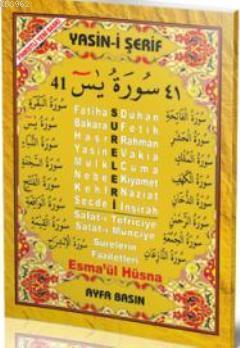 YASİN-İ ŞERİF
41 سورة يس ٤١
Fatiha S Duhan
Bakara U Fetih
Haşr R Rahman
Yasin E Vakıa
Mülk L Cuma
Nebe E Kıyamet
Kehf R Naziat
Secde İ İnşirah
Salat-ı Tefriciye
Salat-ı Münciye
Surelerin
Faziletleri
Esma'ül Hüsna
AYFA BASIN
سورة الفاتحة
سورة الحشر
سورة الملك
سورة الدخان
سورة الرحمن
سورة الجمعة
سورة النازعات
سورة البقرة
سورة يس
سورة النبأ
سورة السجدة
سورة الفتح